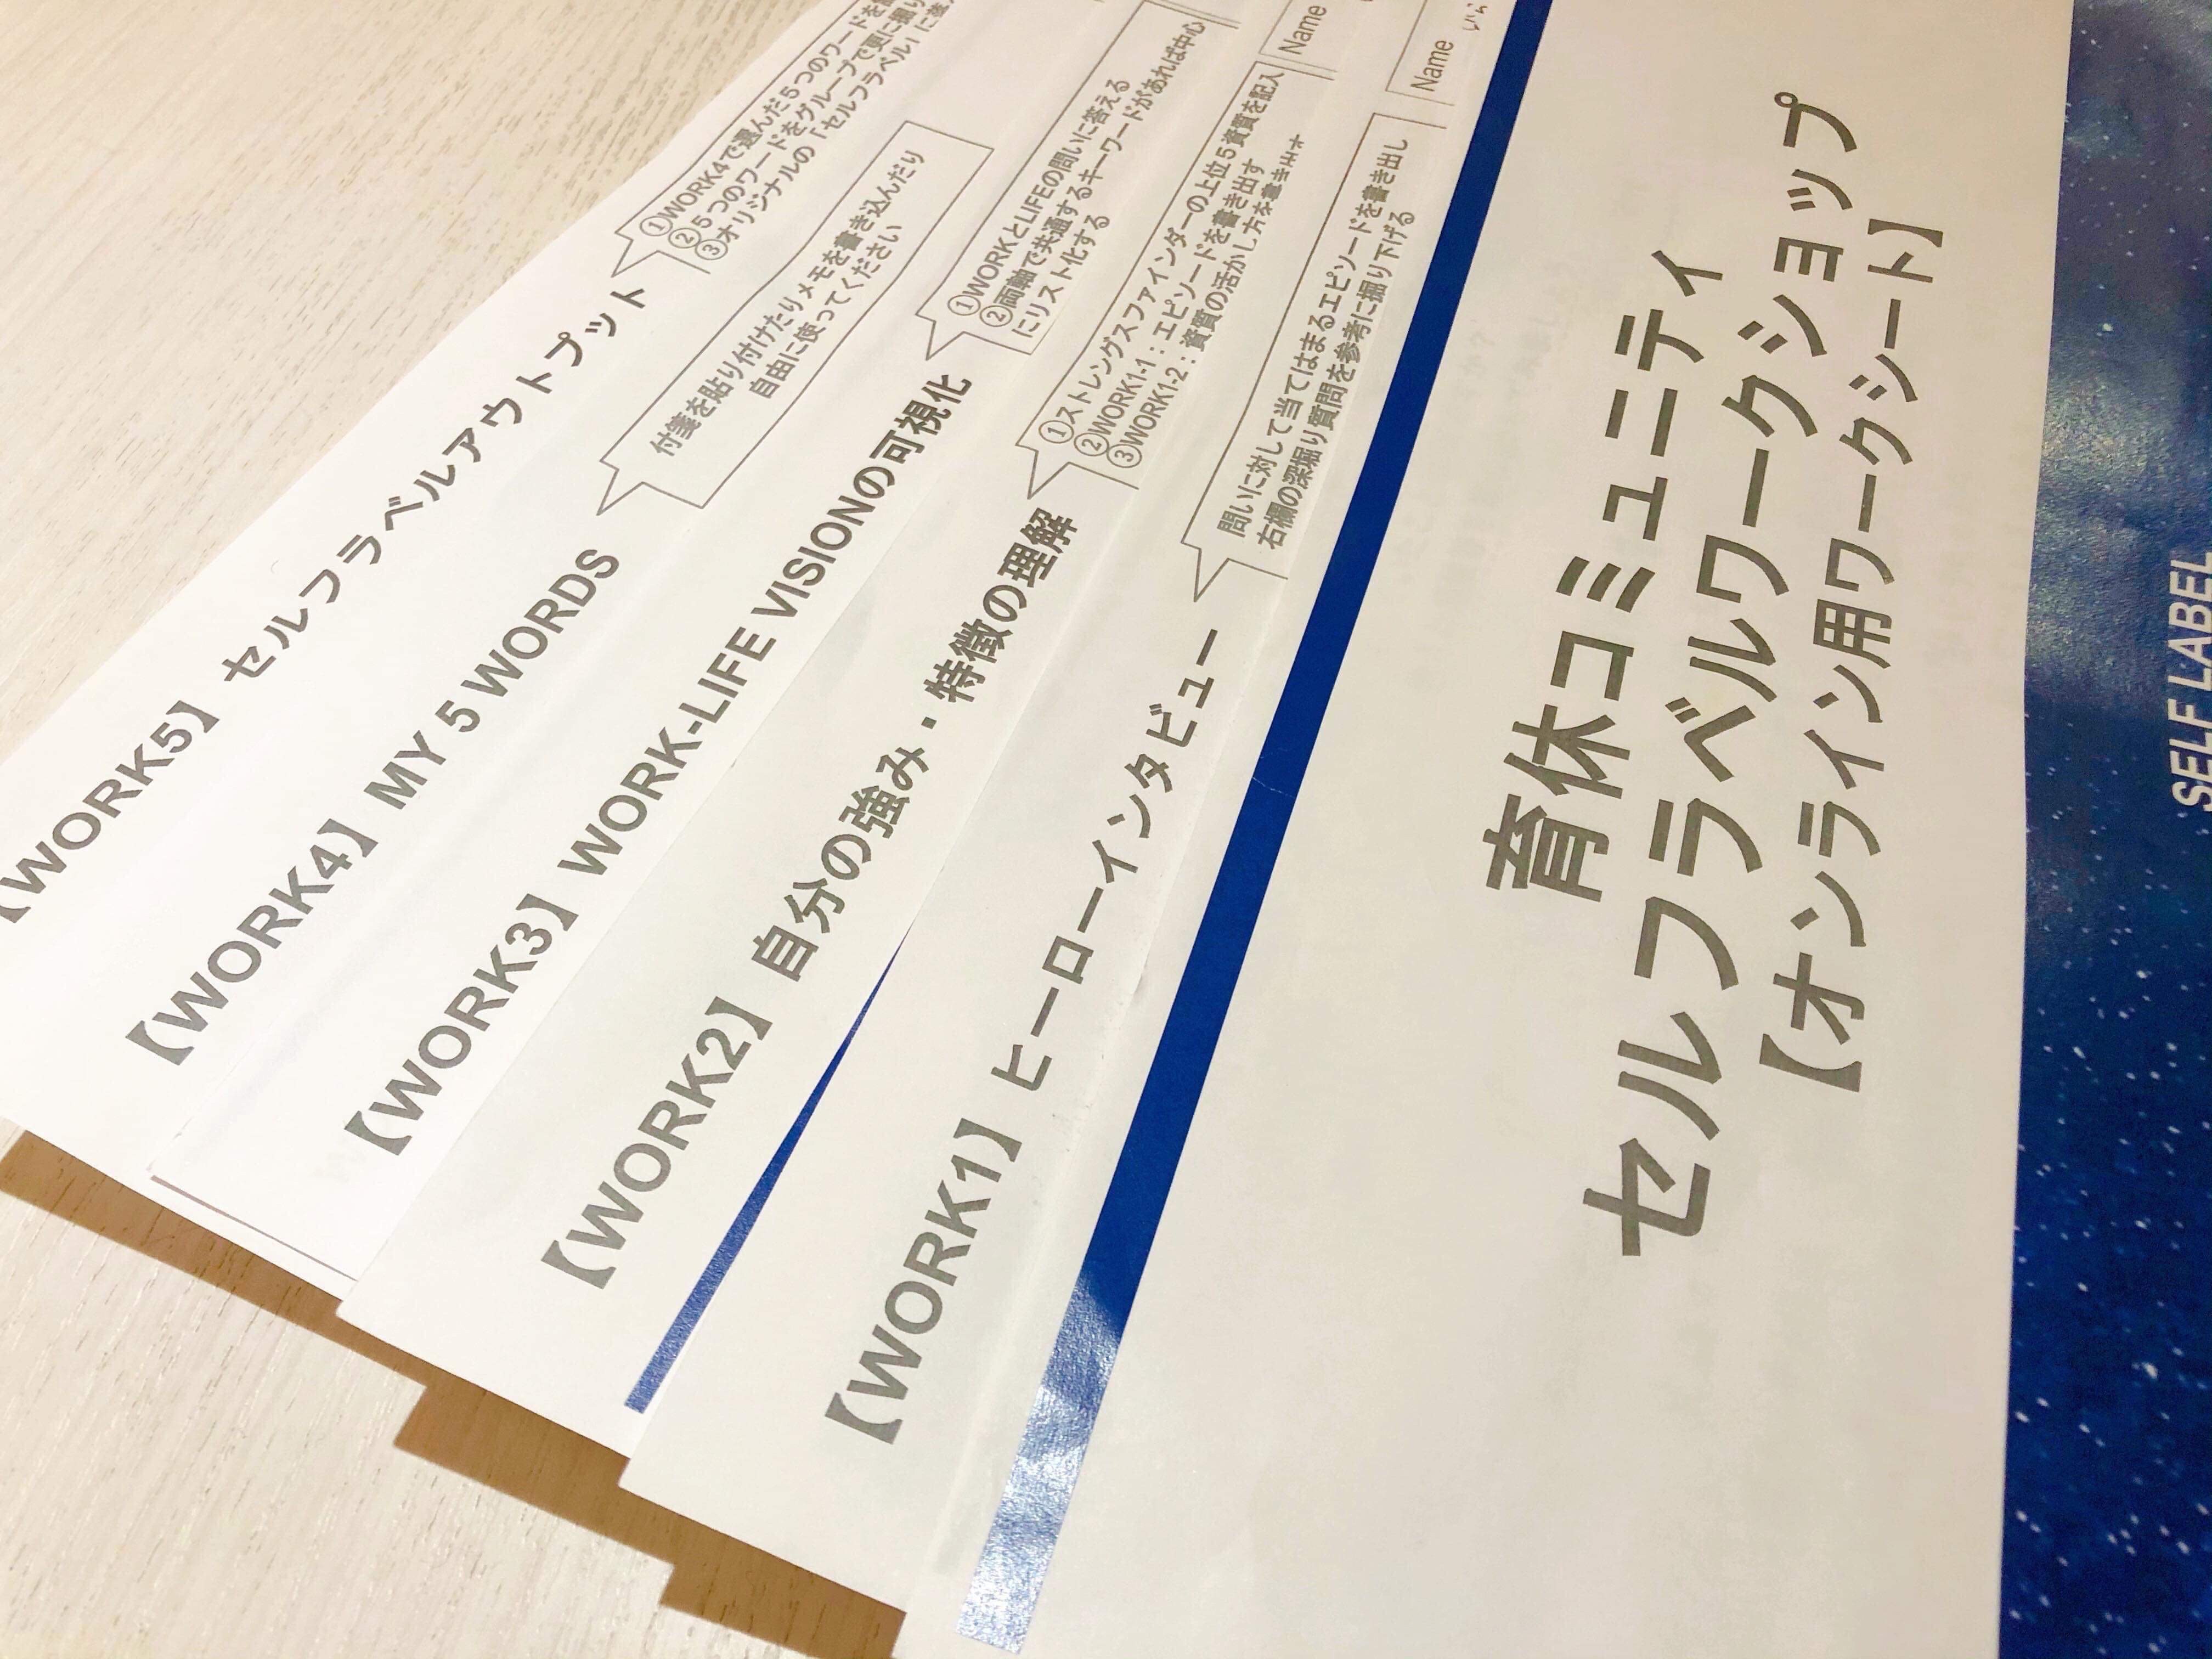 【WORK5】 セルフラベルアウトプット
①WORK4で選んだ5つのワードを
②5つのワードをグループで更に掘り
③オリジナルの「セルフラベル」に
【WORK4】 MY 5 WORDS
付箋を貼り付けたりメモを書き込んだり
自由に使ってください
【WORK3】 WORK-LIFE VISIONの可視化
①WORKとLIFEの問いに答える
②両軸で共通するキーワードがあれば中心
にリスト化する
【WORK2】 自分の強み・特徴の理解
①ストレングスファインダーの上位5資質を記入
②WORK1-1：エピソードを書き出す
③WORK1-2：資質の活かし方を書き出す
Name
【WORK1】 ヒーローインタビュー
問いに対して当てはまるエピソードを書き出し
右欄の深堀り質問を参考に掘り下げる
Name
育休コミュニティ
セルフラベルワークショップ
【オンライン用ワークシート】
SELF LABEL